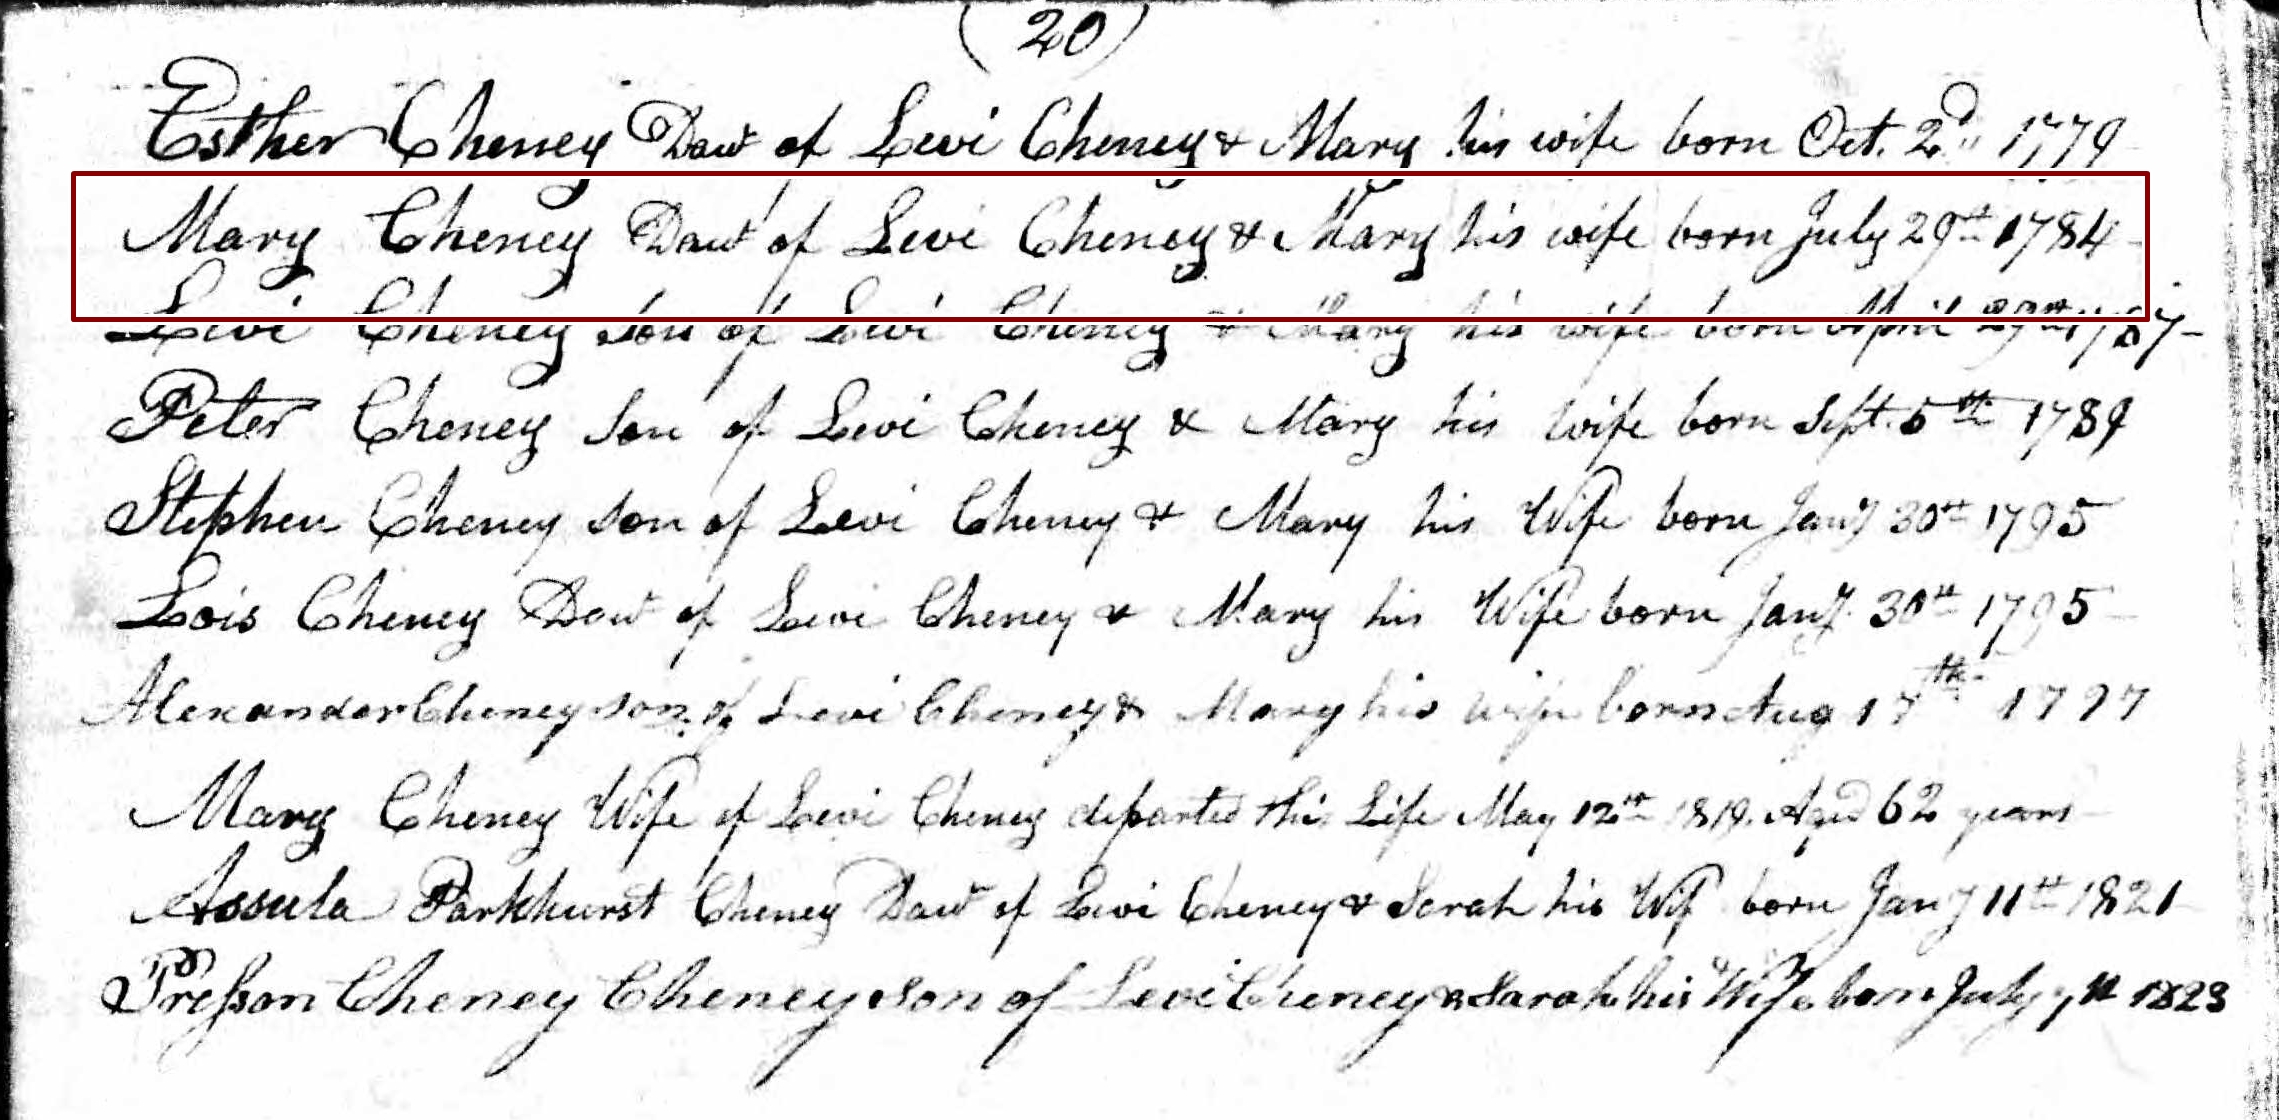 (20)
Esther Cheney Daut of Levi Cheney & Mary his wife born Oct. 2d 1779
Mary Cheney Daut of Levi Cheney & Mary his wife born July 29th 1784
Levi Cheney Son of Levi Cheney & Mary his wife born April 29th 1787
Peter Cheney Son of Levi Cheney & Mary his wife born Sept. 5th 1789
Stephen Cheney Son of Levi Cheney & Mary his Wife born Jany 30th 1795
Lois Cheney Daut of Levi Cheney & Mary his Wife born Jany 30th 1795
Alexander Cheney son of Levi Cheney & Mary his wife born Aug 17th 1797
Mary Cheney Wife of Levi Cheney departed this Life May 12th 1819. Aged 62 years
Assula Parkhurst Cheney Daut of Levi Cheney & Sarah his Wif born Jany 11th 1821
Presson Cheney Cheney son of Levi Cheney & Sarah his Wife born July 1823